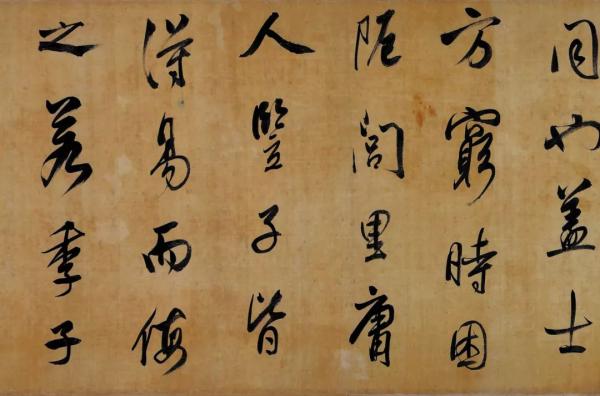 同也盖士
方窮時困
阨閭里庸
人豎子皆
得易而侮
之若季子